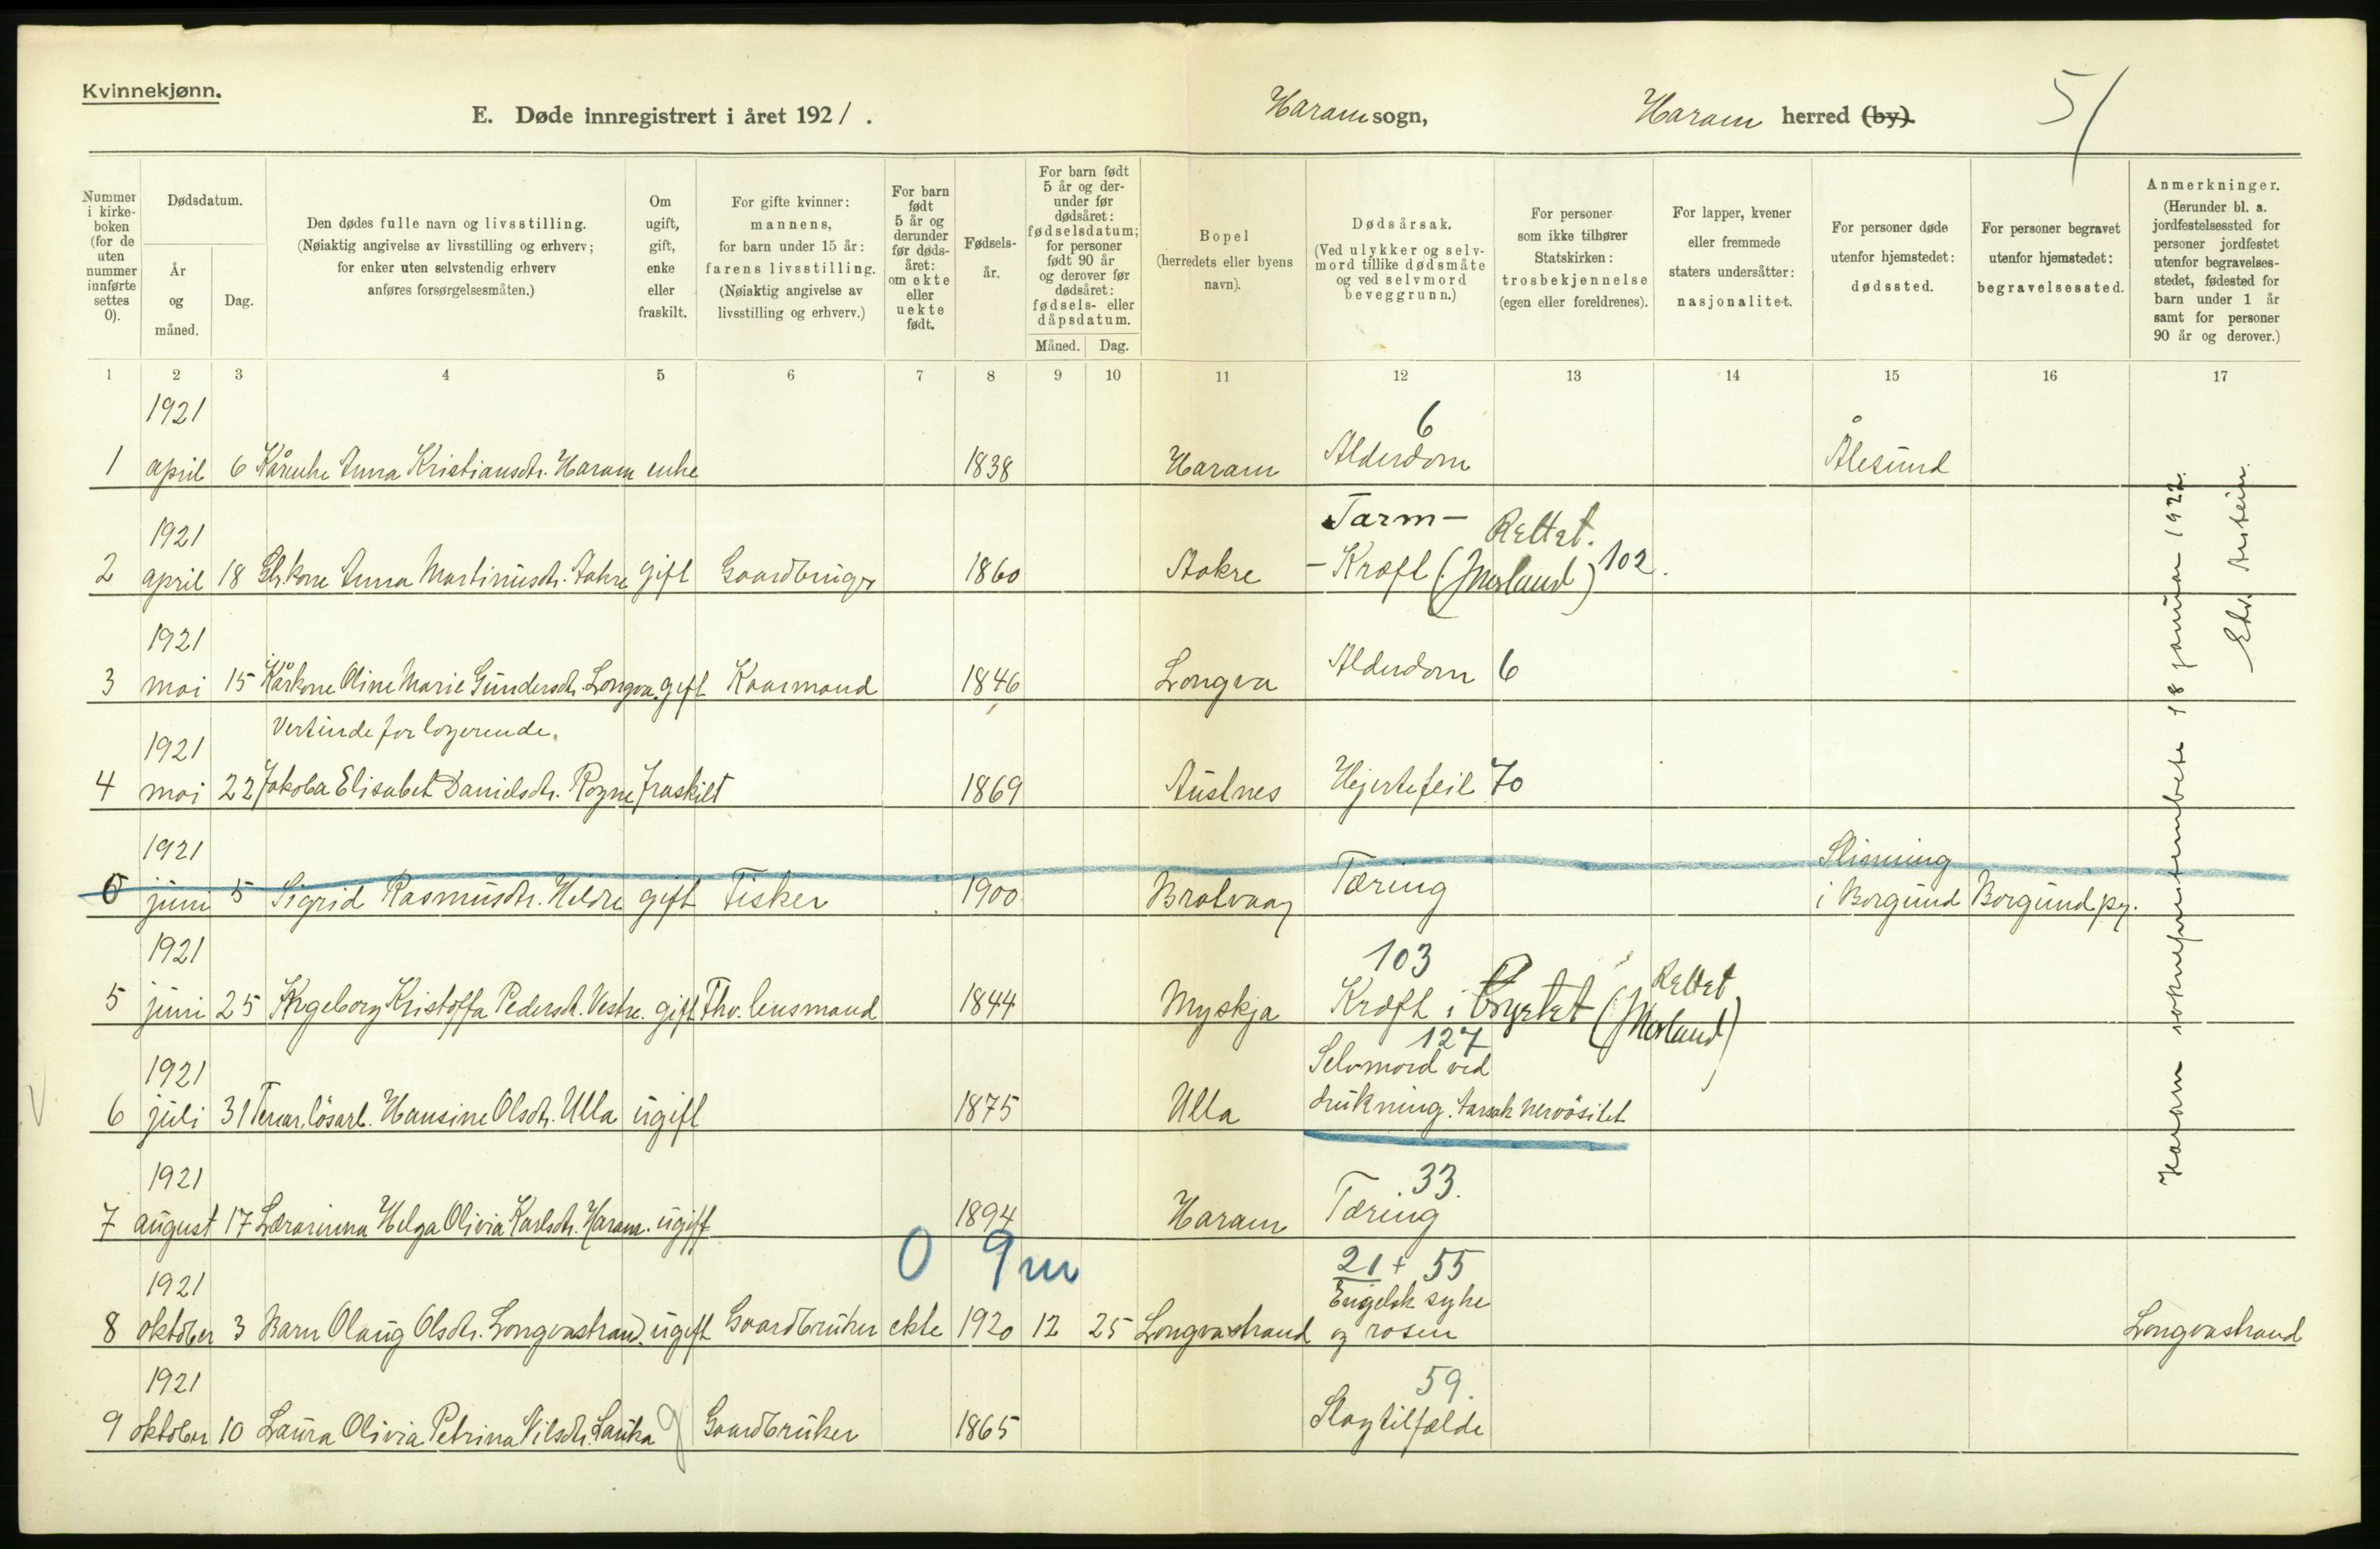 Kvinnekjønn.
E. Døde innregistrert i året 1921. Haram sogn, Haram herred (by). 5/
Nummer i kirkeboken (for de uten nummer innførte settes 0).
Dødsdatum.
År og måned.
Dag.
Den dødes fulle navn og livsstilling. (Nøiaktig angivelse av livsstilling og erhverv; for enker uten selvstendig erhverv anføres forsørgelsesmåten.)
Om ugift, gift, enke eller fraskilt.
For gifte kvinner: mannens, for barn under 15 år: farens livsstilling. (Nøiaktig angivelse av livsstilling og erhverv.)
For barn født 5 år og derunder før dødsåret: om ekte eller uekte født.
Fødselsår.
For barn født 5 år og derunder før dødsåret: fødselsdatum; for personer født 90 år og derover før dødsåret: fødsels- eller dåpsdatum.
Måned. Dag.
Bopel (herredets eller byens navn).
Dødsårsak. (Ved ulykker og selvmord tillike dødsmåte og ved selvmord beveggrunn.)
For personer som ikke tilhører Statskirken: trosbekjennelse (egen eller foreldrenes).
For lapper, kvener eller fremmede staters undersåtter: nasjonalitet.
For personer døde utenfor hjemstedet: dødssted.
For personer begravet utenfor hjemstedet: begravelsessted.
Anmerkninger. (Herunder bl. a. jordfestelsessted for personer jordfestet utenfor begravelsesstedet, fødested for barn under 1 år samt for personer 90 år og derover.)
1 2 3 4 5 6 7 8 9 10 11 12 13 14 15 16 17
1921 6
1 april 6 Kårenke Anna Kristiansdtr. Haram enke 1838 Haram Alderdom Ålesund
1921 Tarm- Rettet.
2 april 18 Gbr.kone Anna Martinusdtr. Aakre gift Gaardbruger 1860 Aakre -Kræft (Morland) 102.
1921
3 mai 15 Kårkone Oline Marie Gundersdtr. Longva. gift Kaarmand 1846 Longva Alderdom 6
Vertinde for logerende.
1921
4 mai 22 Jakoba Elisabet Danielsdtr. Rogne fraskilt 1869 Austnes Hjertefeil 70
1921 Slinning
0 juni 5 Sigrid Rasmusdtr. Hildre gift Fisker 1900 Bratvaag Tæring i Borgund Borgund pg.
1921 103 Rettet
5 juni 25 Ingeborg Kristoffa Pedersdt. Vestre. gift Fhv. lensmand 1844 Myskja Kræft i Brystet (Morland)
1921 127 Selvmord ved
6 juli 31 lösarb. Hansine Olsdtr. Ulla ugift 1875 Ulla drukning. årsak nervösitet
1921 33.
7 august 17 Lærarinna Helga Olivia Karlsdtr. Haram. ugift 1894 Haram Tæring
0 9 m
1921 21 + 55 Engelsk syke
8 oktober 3 Barn Olaug Olsdtr. Longvastrand. ugift Gaardbruker ekte 1920 12 25 Longvastrand og rosen Longvastrand
1921 59.
9 oktober 10 Laura Olivia Petrina Nilsdtr. Lauka g Gaardbruker 1865 Slagtilfælde
Haram sokneprestembete 18 januar 1922.